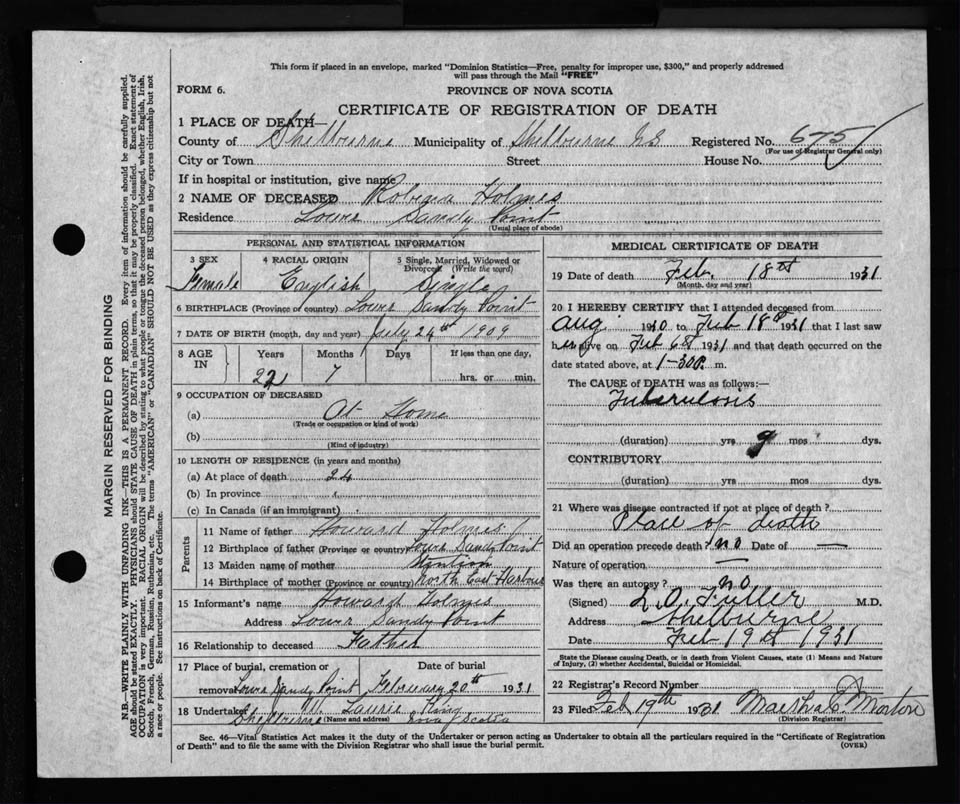 This form if placed in an envelope, marked "Dominion Statistics—Free, penalty for improper use, $300," and properly addressed
will pass through the Mail "FREE"
FORM 6.
PROVINCE OF NOVA SCOTIA
CERTIFICATE OF REGISTRATION OF DEATH
1 PLACE OF DEATH—
County of Shelburne Municipality of Shelburne N.S. Registered No. 675
(For use of Registrar General only)
City or Town Street House No.
If in hospital or institution, give name
2 NAME OF DECEASED Holmes
Residence Lower Sandy Point
(Usual place of abode)
PERSONAL AND STATISTICAL INFORMATION
3 SEX 4 RACIAL ORIGIN 5 Single, Married, Widowed or
Divorced (Write the word)
Female English Single
6 BIRTHPLACE (Province or country) Lower Sandy Point
7 DATE OF BIRTH (month, day and year) July 24th 1909
8 AGE IN Years Months Days If less than one day,
22 7 hrs. or min.
9 OCCUPATION OF DECEASED
(a) At Home
(Trade or occupation or kind of work)
(b)
(Kind of industry)
10 LENGTH OF RESIDENCE (in years and months)
(a) At place of death 24
(b) In province
(c) In Canada (if an immigrant)
Parents
11 Name of father Howard Holmes
12 Birthplace of father (Province or country) Lower Sandy Point
13 Maiden name of mother
14 Birthplace of mother (Province or country) North East Harbour
15 Informant's name Howard Holmes
Address Lower Sandy Point
16 Relationship to deceased Father
17 Place of burial, cremation or
removal Lower Sandy Point
Date of burial
February 20th 1931
18 Undertaker W. King
Shelburne (Name and address) Nova Scotia
MEDICAL CERTIFICATE OF DEATH
19 Date of death Feb. 18th 1931
(Month, day and year)
20 I HEREBY CERTIFY that I attended deceased from
Aug 1930 to Feb 18th 1931 that I last saw
her alive on Feb 6th 1931 and that death occurred on the
date stated above, at 1-30 P. m.
The CAUSE of DEATH was as follows:—
Tuberculosis
(duration) yrs 9 mos dys.
CONTRIBUTORY
(duration) yrs mos dys.
21 Where was disease contracted if not at place of death?
Place of death
Did an operation precede death? no Date of —
Nature of operation —
Was there an autopsy? no
(Signed) L. O. Fuller M.D.
Address Shelburne
Date Feb 19th 1931
State the Disease causing Death, or in death from Violent Causes, state (1) Means and Nature
of Injury, (2) whether Accidental, Suicidal or Homicidal.
22 Registrar's Record Number
23 Filed Feb 19th 1931 Morton
(Division Registrar)
Sec. 46—Vital Statistics Act makes it the duty of the Undertaker or person acting as Undertaker to obtain all the particulars required in the "Certificate of Registration
of Death" and to file the same with the Division Registrar who shall issue the burial permit.
(OVER)
MARGIN RESERVED FOR BINDING
N.B.—WRITE PLAINLY WITH UNFADING INK—THIS IS A PERMANENT RECORD. Every item of information should be carefully supplied.
AGE should be stated EXACTLY. PHYSICIANS should STATE CAUSE OF DEATH in plain terms, so that it may be properly classified. Exact statement of
OCCUPATION is very important. RACIAL ORIGIN will be described by stating to what people or tongue the deceased person belonged, whether English, Irish,
Scotch, French, German, Russian, Ruthenian, etc. The terms "AMERICAN" or "CANADIAN" SHOULD NOT BE USED as they express citizenship but not
a race or people. See instructions on back of Certificate.